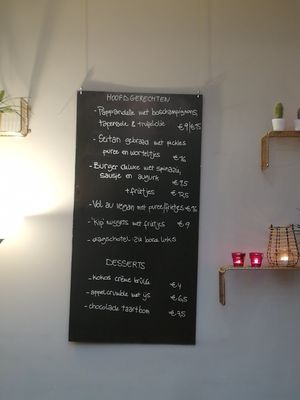 HOOFDGERECHTEN
- Pappardelle met boschampignons,
tapenade & truffelolie €9/€15
- Seitan gebraad met pickles
puree en worteltjes €16
- Burger deluxe met spinazie,
sausje en augurk €7,5
+ frietjes €12,5
- Vol au vegan met puree/frietjes €16
- "Kip" nuggets met frietjes €9
- dagschotel zie bord links
DESSERTS
- kokos crème brûlée €4
- appelcrumble met ijs €6,5
- chocolade taartbom €7,5